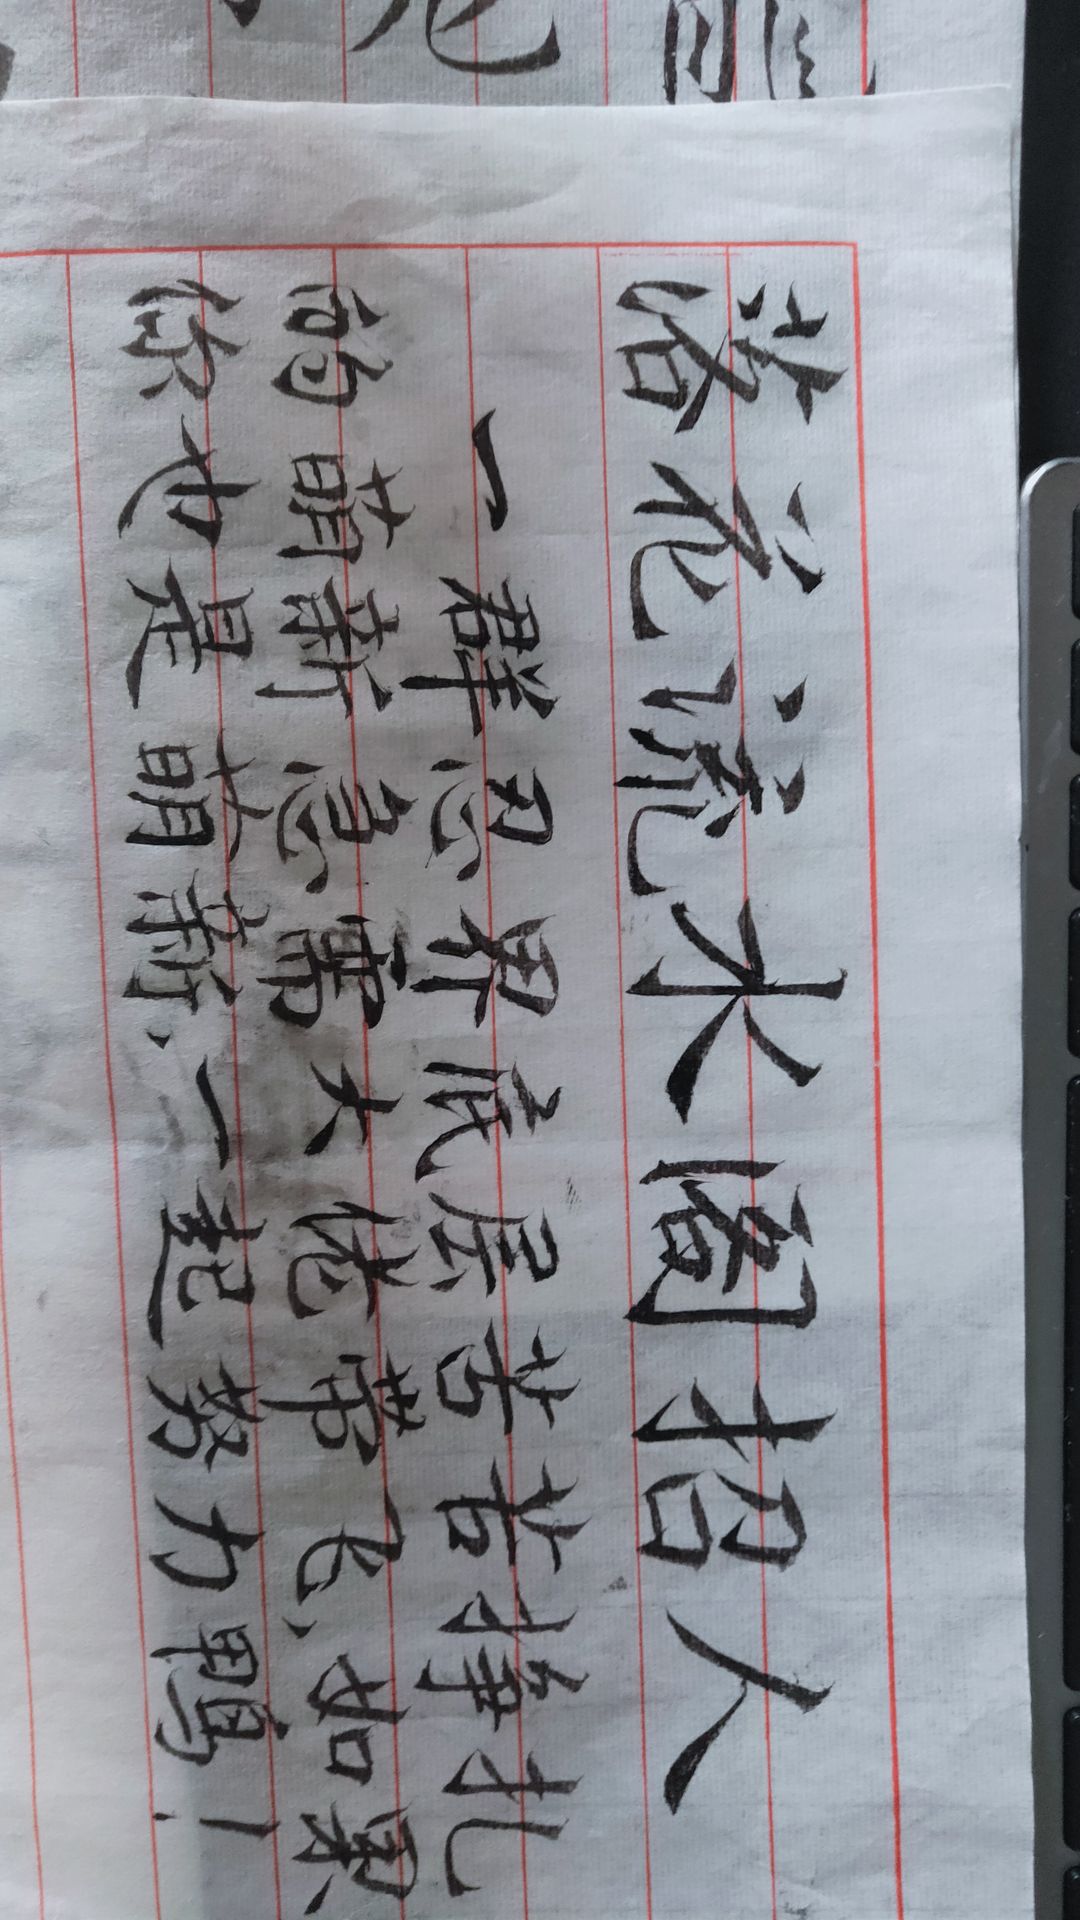 落花流水阁招人
一群忍界底层苦苦挣扎
的萌新急需大佬带飞,如果
你也是萌新,一起努力鸭!